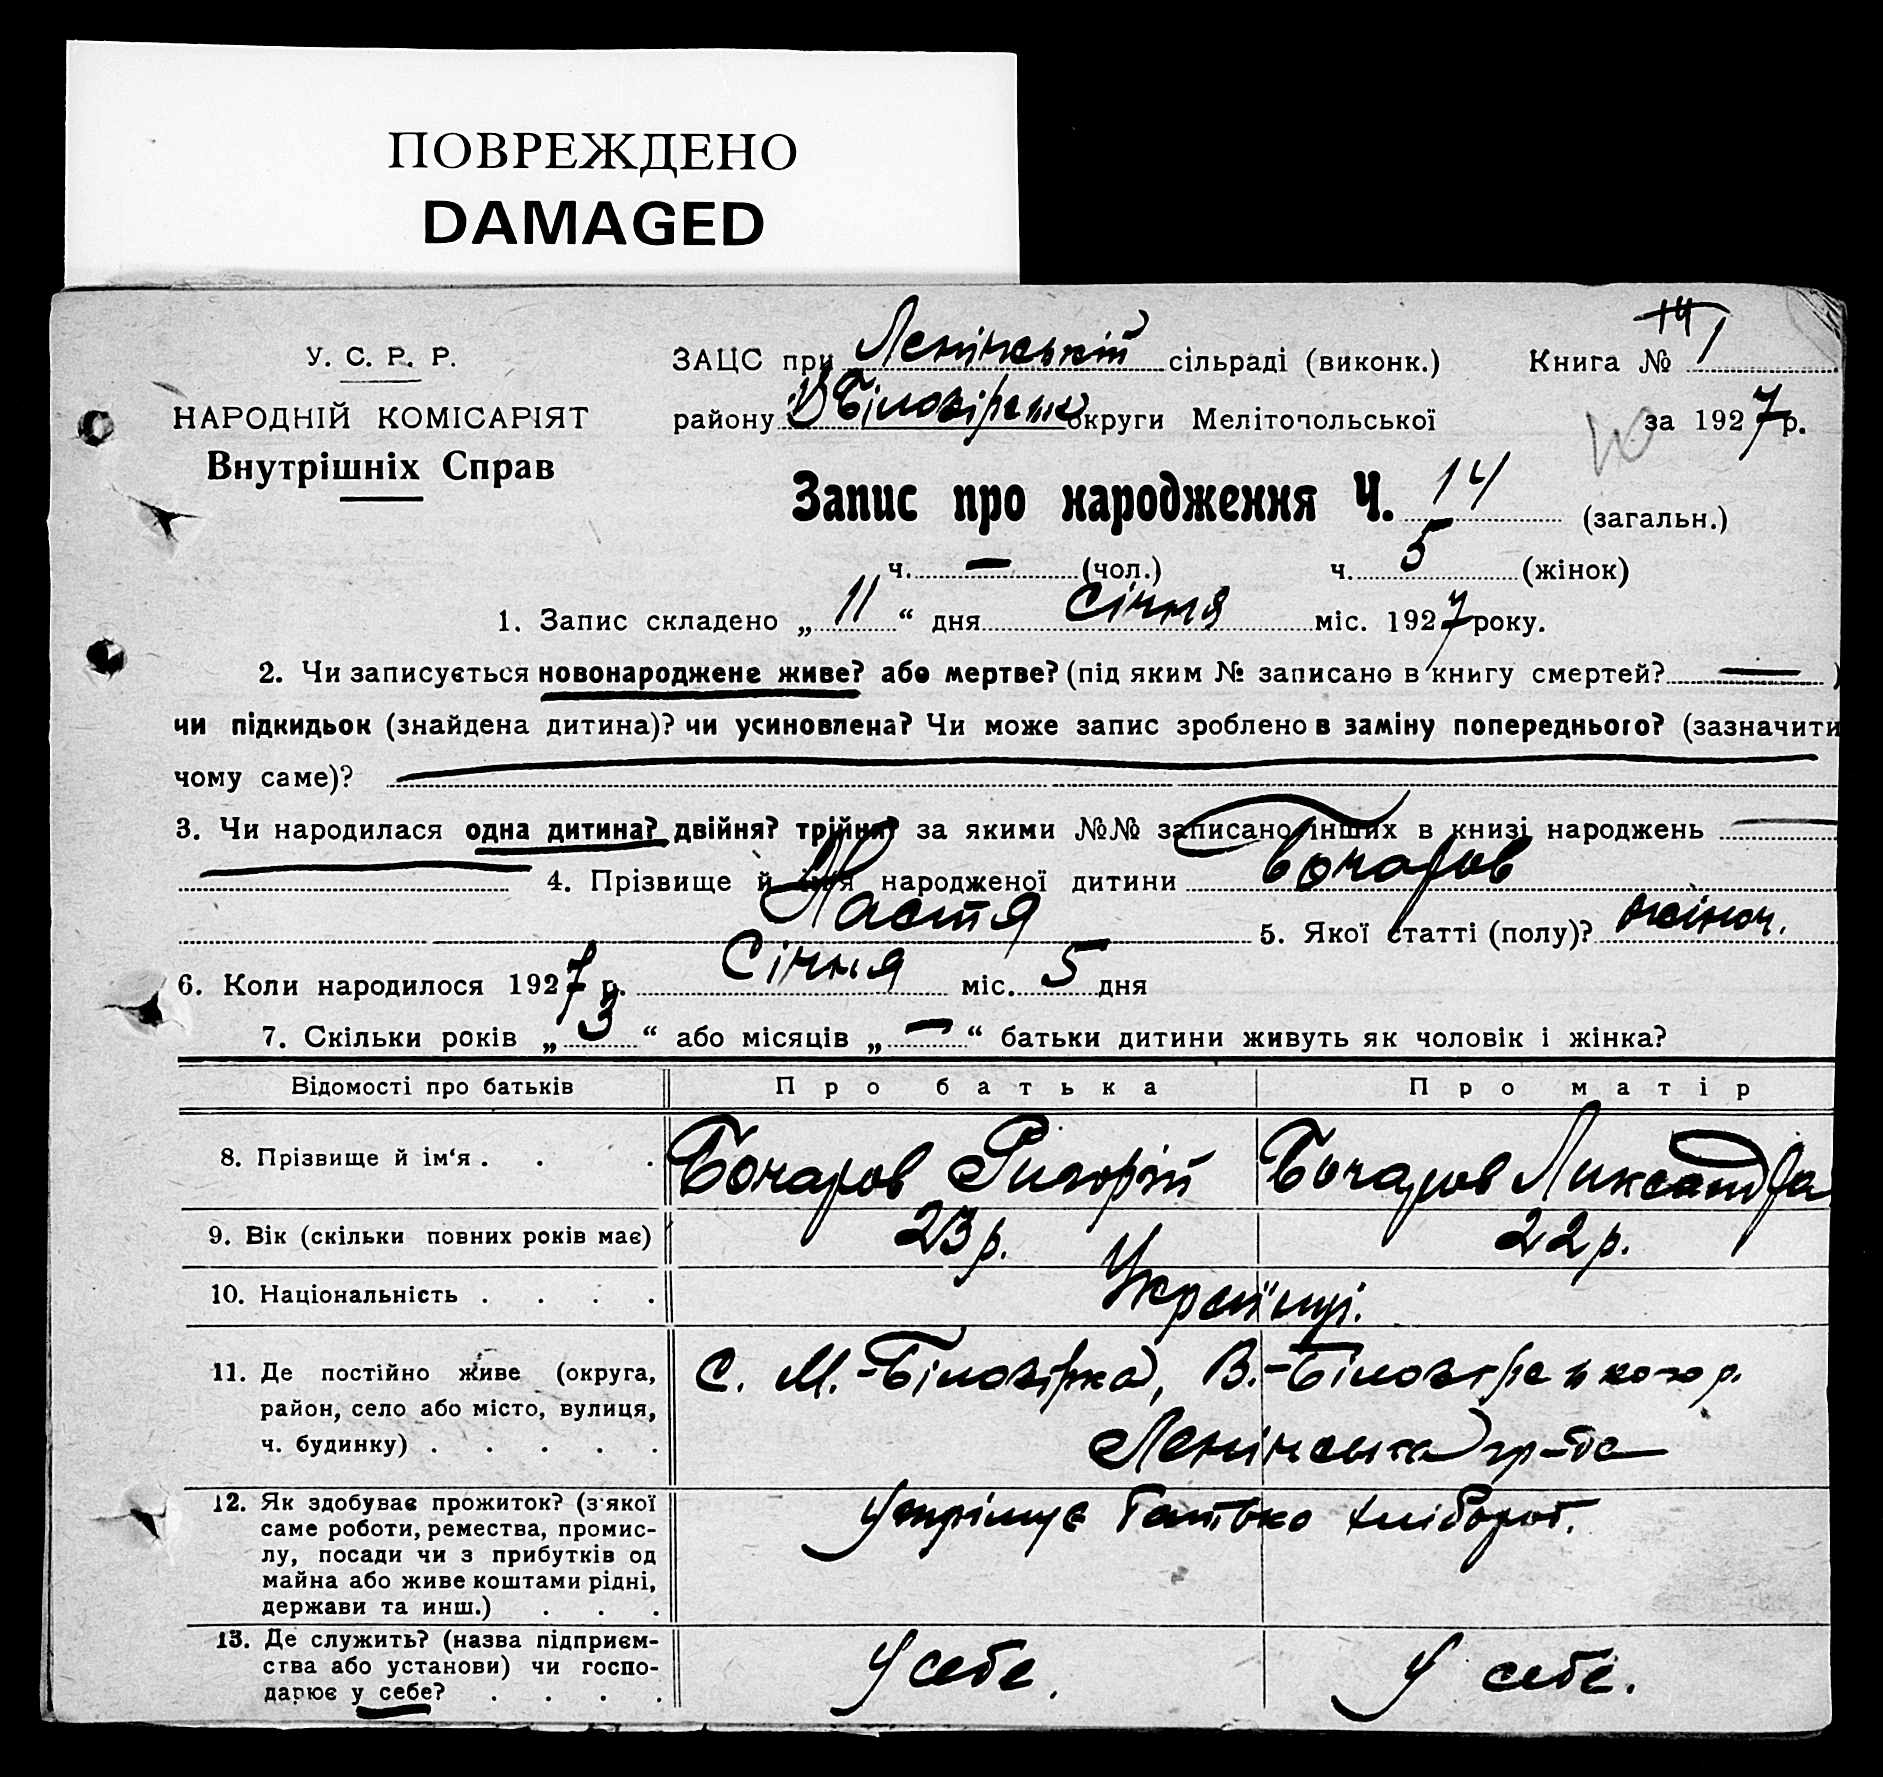 ПОВРЕЖДЕНО
DAMAGED
У. С. Р. Р.
НАРОДНІЙ КОМІСАРІЯТ
Внутрішніх Справ
ЗАЦС при Ленінській сільраді (виконк.) Книга № 14 1
району округи Мелітопольської за 1927 р.
Запис про народження Ч. 14 (загальн.)
ч. — (чол.) ч. 5 (жінок)
1. Запис складено „ 11 “ дня Січня міс. 1927 року.
2. Чи записується новонароджене живе? або мертве? (під яким № записано в книгу смертей? — )
чи підкидьок (знайдена дитина)? чи усиновлена? Чи може запис зроблено в заміну попереднього? (зазначити
чому саме)?
3. Чи народилася одна дитина? двійня? трійня? за якими №№ записано інших в книзі народжень —
4. Прізвище й ім'я народженої дитини Бочаров
Настя 5. Якої статті (полу)? жіноч.
6. Коли народилося 1927 р. Січня міс. 5 дня
7. Скільки років „ 3 “ або місяців „ — “ батьки дитини живуть як чоловік і жінка?
Відомості про батьків Про батька Про матір
8. Прізвище й ім'я . . . Бочаров Григорій Бочаров Лександра
9. Вік (скільки повних років має) 23 р. 22 р.
10. Національність . . . . Українці.
11. Де постійно живе (округа,
район, село або місто, вулиця,
ч. будинку) . . . . .
С. М.-Білозірка, В.-Білозірського р.
Ленінська
12. Як здобуває прожиток? (з якої
саме роботи, ремества, промис-
лу, посади чи з прибутків од
майна або живе коштами рідні,
держави та инш.) . . .
Утрімує батько хлібороб.
13. Де служить? (назва підприєм-
ства або установи) чи госпо-
дарює у себе? . . . .
У себе. У себе.